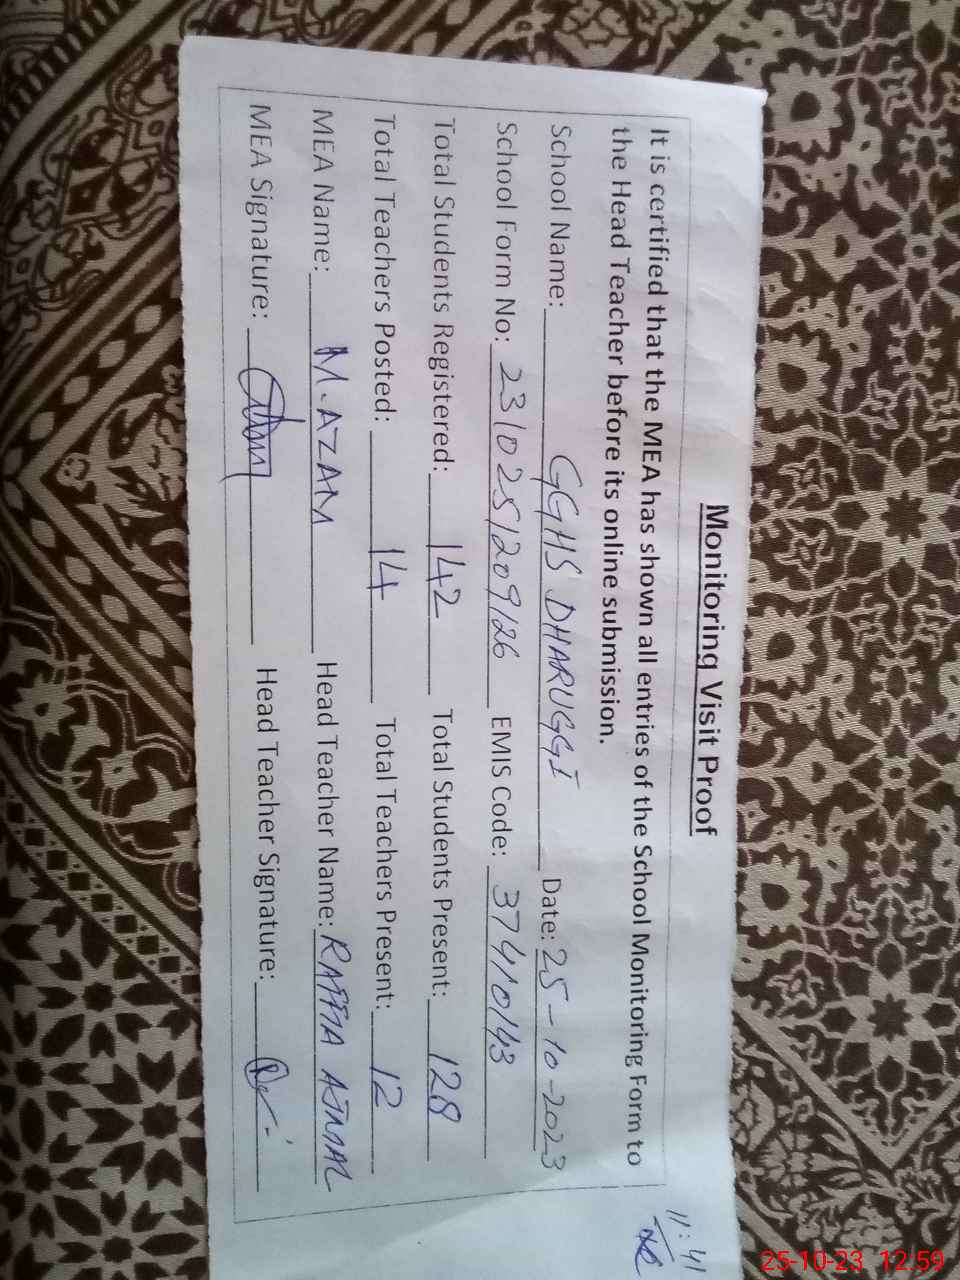 Monitoring Visit Proof
It is certified that the MEA has shown all entries of the School Monitoring Form to
the Head Teacher before its online submission.
School Name: GGHS DHARUGGI Date: 25-10-2023
School Form No: 2310251209126 EMIS Code: 37410143
Total Students Registered: 142 Total Students Present: 128
Total Teachers Posted: 14 Total Teachers Present: 12
MEA Name: M.AZAM Head Teacher Name: RAFFIA AJMAL
MEA Signature: Head Teacher Signature:
11:41
25-10-23 12:59